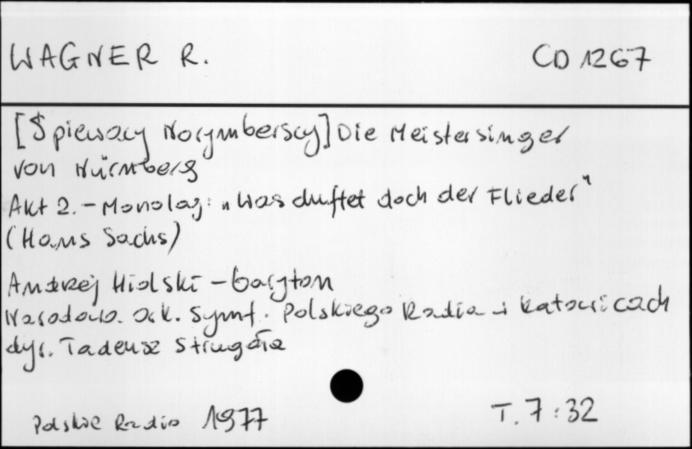 WAGNER R. CD 1267
[Śpiewacy Norymberscy] Die Meistersinger
von Nürnberg
Akt 2. - Monolog: „Was duftet doch der Flieder"
(Hans Sachs)
Andrzej Hiolski - baryton
Narodowa. Ork. Symf. Polskiego Radia w Katowicach
dyr. Tadeusz Strugała
Polskie Radio 1977 T. 7:32